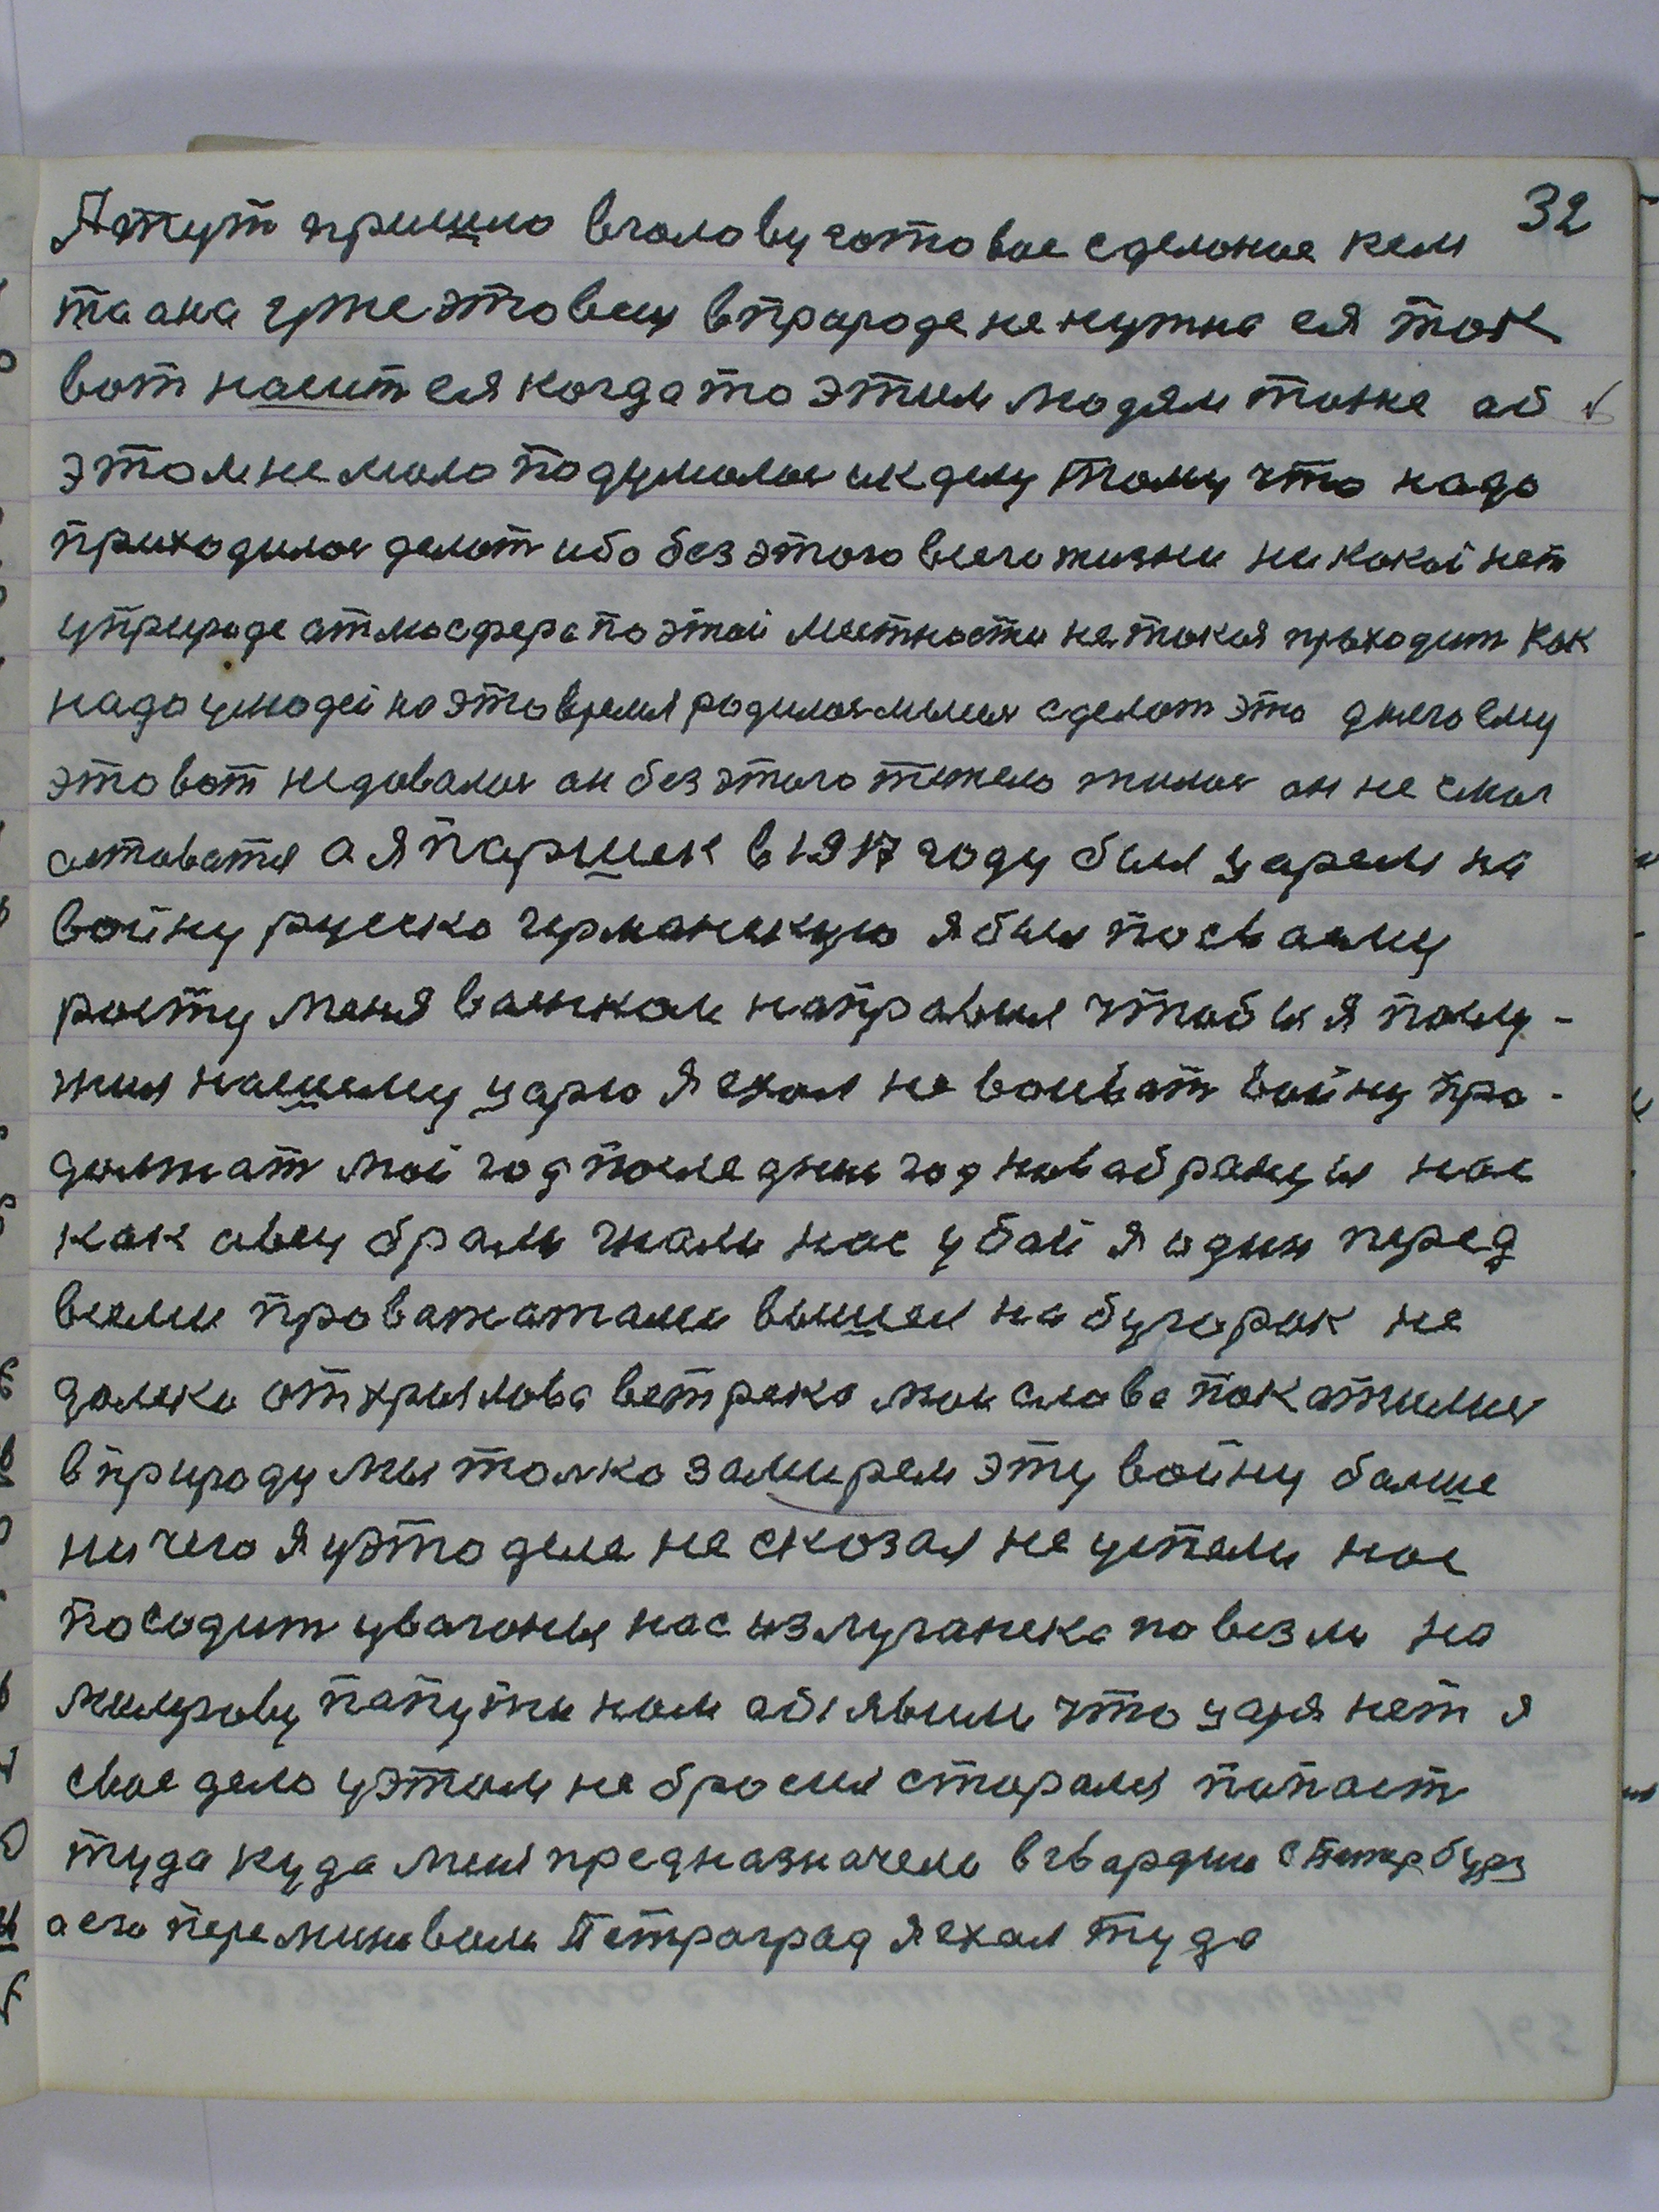 32
А тут пришло вголову готовое сделоное кем
та она уже этовещ вприроде не нужна ся ток
вот носит ся когдато этим людям тоже об
этом не мало подумолос ик делу тому что надо
приходилос делот ибо без этого всего жизни ни какой нет
уприроде атмосфера поэтой месности не такоя проходит как
надо улюдей но это время родилос мысля сделат это днего ему
это вот недовалос он без этого тежело жилос он не смог
астоватся а я паршек в 1917 году был царем на
войну руско германскую я был посваему
росту меня ваинком направил чтобы я послу-
жил нашему царю я ехал не воиват войну про-
должат мой год последнии год новобранцы нас
как овец брали гнали нас у бой я один перед
всеми проважатами вышел на бугорок не
долеко от хрылова ветрека мои слова покатилис
вприроду мы толко замирем эту войну болше
ни чего я уэто дела не сказал не успели нас
посодит увагоны нас из луганска повезли на
милрову папути нам абіявили что царя нет я
свое дело уэтом не бросил старался попаст
туда куда меня предназначели вгвардии с Петербурз
а его переминовали Петраград я ехал туда